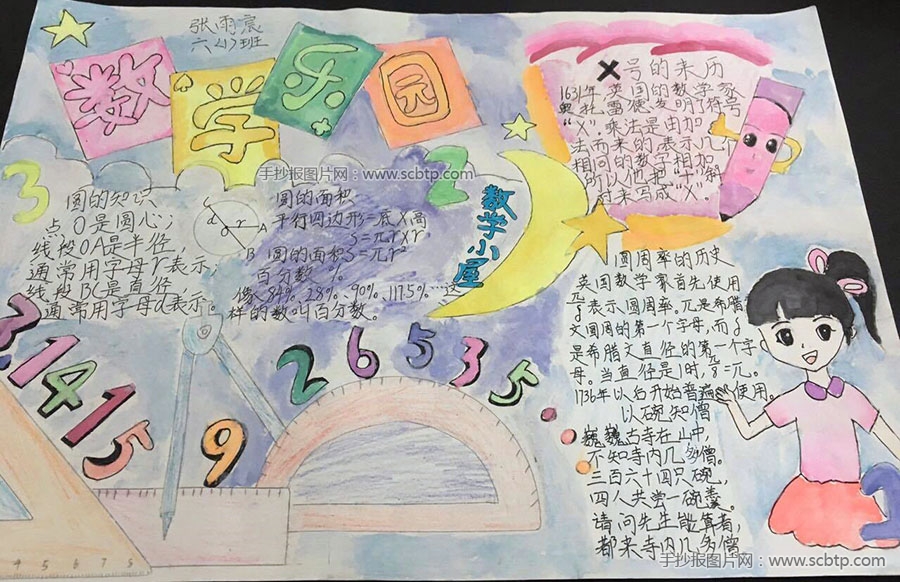 张雨宸
六（1）班
数学乐园
手抄报图片网：www.scbtp.com
3
2
圆的知识
点O是圆心；
线段OA是半径，
通常用字母r表示；
线段BC是直径
通常用字母d表示。
圆的面积
平行四边形=底X高
S=兀rXr
圆的面积S=兀r
百分数 %
像84%、28%、90%、117.5%…这
样的数叫百分数。
d
r
A
B
数学小屋
X号的来历
1631年，英国的数学家
奥托雷德发明了符号
“X”.乘法是由加
法而来的表示几个
相同的数字相加
所以他把“十”斜
过来写成“X”。
圆周率的历史
英国数学家首先使用
表示圆周率。兀是希腊
文圆周的第一个字母,而δ
是希腊文直径的第一个字
母。当直径是1时,
1736年以后开始普遍使用。
以碗知僧
巍巍古寺在山中,
不知寺内几多僧。
三百六十四只碗,
四人共尝一碗羹。
请问先生能算者,
都来寺内几多僧
3.1415
9
26535.
4 5 6 7 8
手抄报图片网：www.scbtp.com